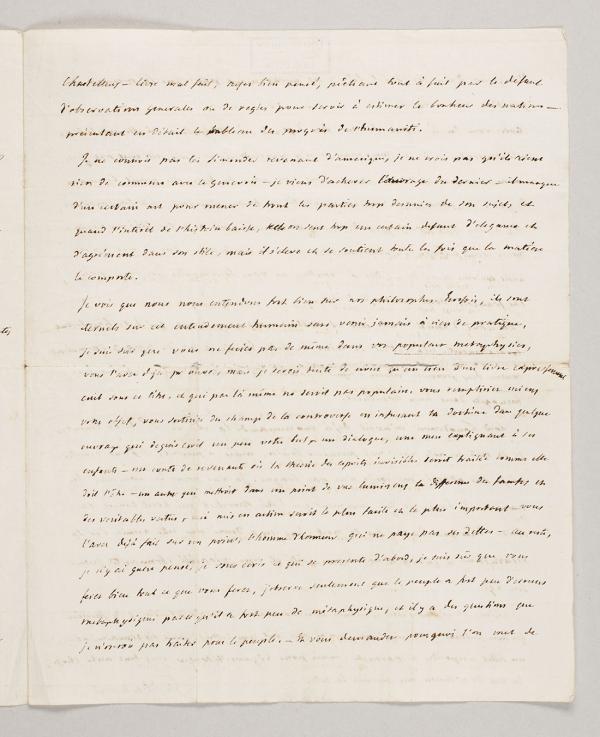 Chastellux - livre mal fait, assez bien pensé, péchant tout à fait par le défaut
d'observations generales ou de regles pour servir à estimer le bonheur des nations -
présentant en détail le tableau des progrès de l'humanité.
Je ne connois pas les Simondes revenant d'amerique, je ne crois pas qu'ils aient
rien de commun avec le genevois - je viens d'achever l'ouvrage du dernier - il manque
d'un certain art pour mener de front les parties trop desunies de son sujet, et
quand l'intérêt de l'histoire baisse, on sent trop un certain defaut d'élégance et
d'agrément dans son stile, mais il s'éleve et se soutient toute les fois que la matiere
le comporte.
Je vois que nous nous entendons fort bien sur nos philosophes Ecossois, ils sont
éternels sur cet entendement humain sans venir jamais à rien de pratique,
je suis sûr que vous ne feriez pas de même dans vos popular metaphysics,
vous l'avez déja prouvé, mais je serois tenté de croire qu'un livre
écrit sous ce titre, et qui par là même ne seroit pas populaire. vous rempliriez mieux
votre objet, vous sortiriez du champ de la controverse en infusant la doctrine dans quelque
ouvrage qui deguiseroit un peu votre but - un dialogue, une mere expliquant à ses
enfants - un conte de revenants où la théorie des esprits invisibles seroit traitée comme elle
doit l'être - un autre qui mettroit dans un point de vue lumineux la difference des fausses et
des veritables vertus, - mis en action seroit le plus facile et le plus important - vous
l'avez déjà fait sur un point, l'homme d'honneur qui ne paye pas ses dettes - au reste,
je n'y ai guere pensé, je vous écris ce qui se presente d'abord, je suis sûr que vous
ferez bien tout ce que vous ferez, j'observe seulement que le peuple a fort peu d'erreurs
metaphysiques parce qu'il a fort peu de métaphysique, et il y a des questions que
je n'oserois pas traiter pour le peuple. - Si vous demandez pourquoi l'on veut de